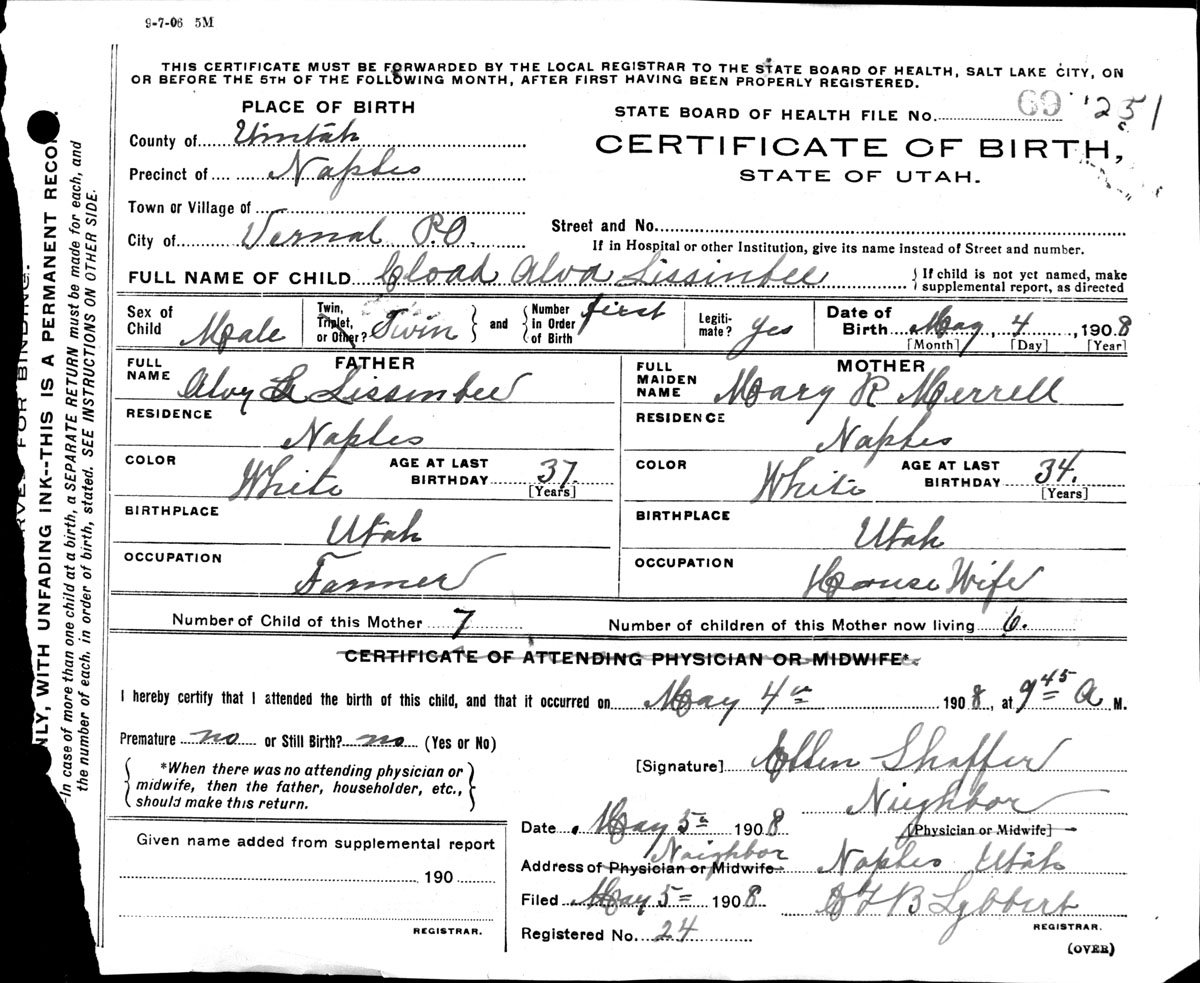 9-7-06 5M
THIS CERTIFICATE MUST BE FORWARDED BY THE LOCAL REGISTRAR TO THE STATE BOARD OF HEALTH, SALT LAKE CITY, ON
OR BEFORE THE 5TH OF THE FOLLOWING MONTH, AFTER FIRST HAVING BEEN PROPERLY REGISTERED.
PLACE OF BIRTH
County of Uintah
Precinct of Naples
Town or Village of
City of Vernal P.O.
STATE BOARD OF HEALTH FILE No. 69 251
CERTIFICATE OF BIRTH,
STATE OF UTAH.
Street and No.
If in Hospital or other Institution, give its name instead of Street and number.
FULL NAME OF CHILD Cload Alva Lissinbee { If child is not yet named, make
supplemental report, as directed
Sex of Child Male
Twin, Triplet, or Other? Twin } and { Number in Order of Birth first
Legitimate? Yes
Date of Birth May 4, 1908
[Month] [Day] [Year]
FATHER
FULL NAME Alvy L Lissinbee
RESIDENCE
Naples
COLOR White AGE AT LAST BIRTHDAY 37. [Years]
BIRTHPLACE
Utah
OCCUPATION
Farmer
MOTHER
FULL MAIDEN NAME Mary R Merrell
RESIDENCE
Naples
COLOR White AGE AT LAST BIRTHDAY 34. [Years]
BIRTHPLACE
Utah
OCCUPATION
House Wife
Number of Child of this Mother 7 Number of children of this Mother now living 6.
CERTIFICATE OF ATTENDING PHYSICIAN OR MIDWIFE*
I hereby certify that I attended the birth of this child, and that it occurred on May 4th 1908, at 9 45 A M.
Premature no or Still Birth? no (Yes or No)
{ *When there was no attending physician or
midwife, then the father, householder, etc.,
should make this return. }
[Signature] Ellen Shaffer
Nieghbor
[Physician or Midwife]
Date May 5th 1908
Neighbor
Address of Physician or Midwife Naples Utah
Filed May 5 1908 B Lybbert
REGISTRAR.
Registered No. 24
(OVER)
Given name added from supplemental report
190
REGISTRAR.
RVED FOR BINDING.
NLY, WITH UNFADING INK--THIS IS A PERMANENT RECOR
-In case of more than one child at a birth, a SEPARATE RETURN must be made for each, and
the number of each, in order of birth, stated. SEE INSTRUCTIONS ON OTHER SIDE.